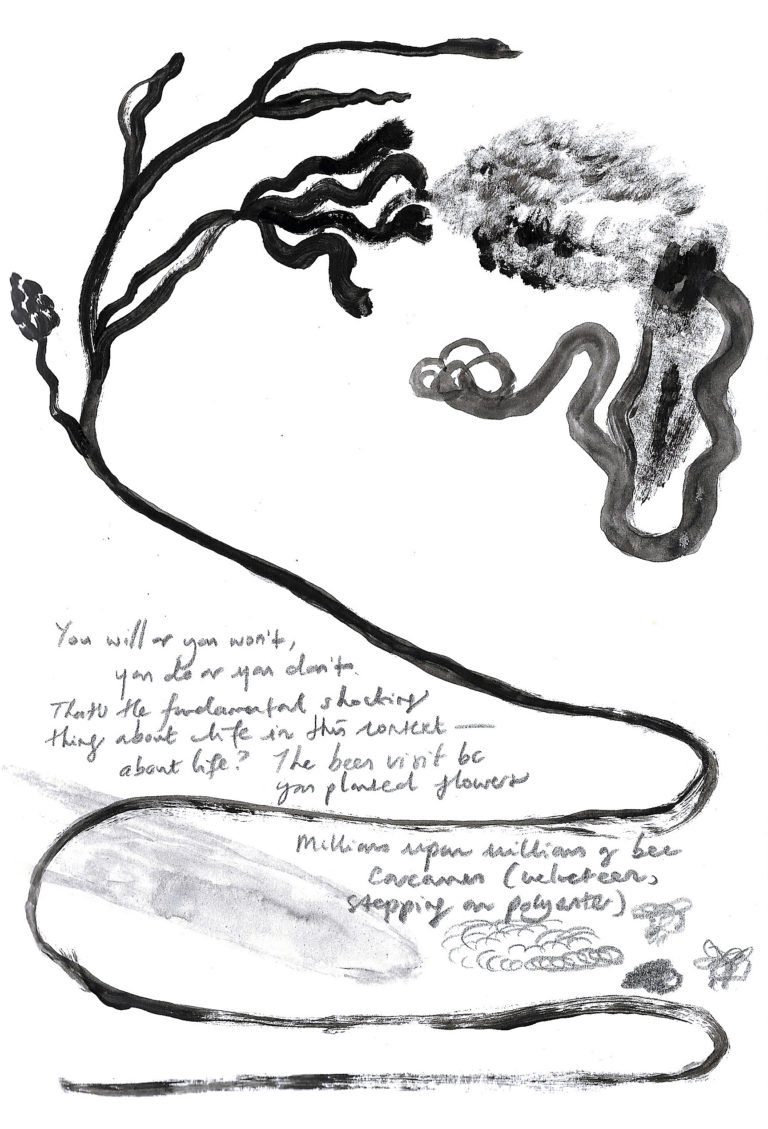 You will or you won't,
you do or you don't.
That's the fundamental shocking
thing about life in this context —
about life? The bees visit bc
you planted flowers
Millions upon millions of bee
(velveteen,
stepping on polyester)